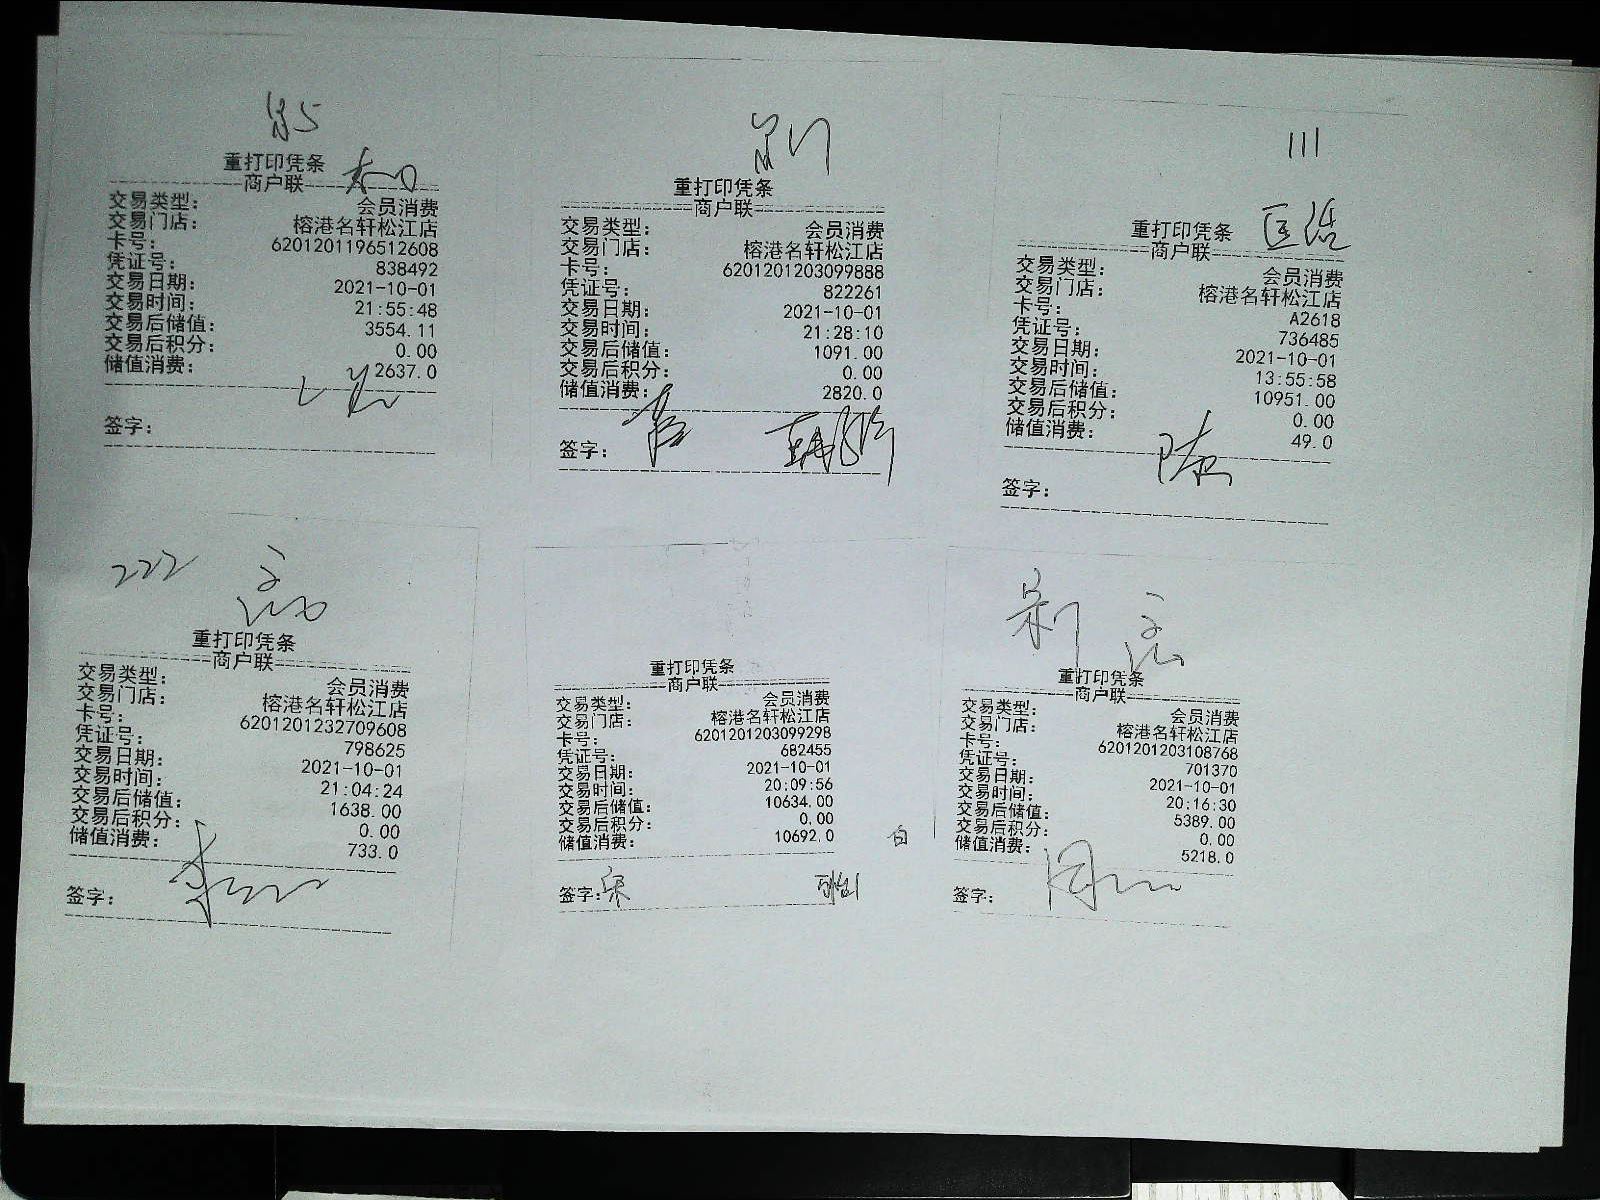 重打印凭条
商户联
交易类型： 会员消费
交易门店： 榕港名轩松江店
卡号： 6201201196512608
凭证号： 838492
交易日期： 2021-10-01
交易时间： 21:55:48
交易后储值： 3554.11
交易后积分： 0.00
储值消费： 2637.0
签字：
重打印凭条
商户联
交易类型： 会员消费
交易门店： 榕港名轩松江店
卡号： 6201201203099888
凭证号： 822261
交易日期： 2021-10-01
交易时间： 21:28:10
交易后储值： 1091.00
交易后积分： 0.00
储值消费： 2820.0
签字：
111
重打印凭条
商户联
交易类型： 会员消费
交易门店： 榕港名轩松江店
卡号： A2618
凭证号： 736485
交易日期： 2021-10-01
交易时间： 13:55:58
交易后储值： 10951.00
交易后积分： 0.00
储值消费： 49.0
签字：
222
重打印凭条
商户联
交易类型： 会员消费
交易门店： 榕港名轩松江店
卡号： 6201201232709608
凭证号： 798625
交易日期： 2021-10-01
交易时间： 21:04:24
交易后储值： 1638.00
交易后积分： 0.00
储值消费： 733.0
签字：
重打印凭条
商户联
交易类型： 会员消费
交易门店： 榕港名轩松江店
卡号： 6201201203099298
凭证号： 682455
交易日期： 2021-10-01
交易时间： 20:09:56
交易后储值： 10634.00
交易后积分： 0.00
储值消费： 10692.0
签字：
重打印凭条
商户联
交易类型： 会员消费
交易门店： 榕港名轩松江店
卡号： 6201201203108768
凭证号： 701370
交易日期： 2021-10-01
交易时间： 20:16:30
交易后储值： 5389.00
交易后积分： 0.00
储值消费： 5218.0
签字：